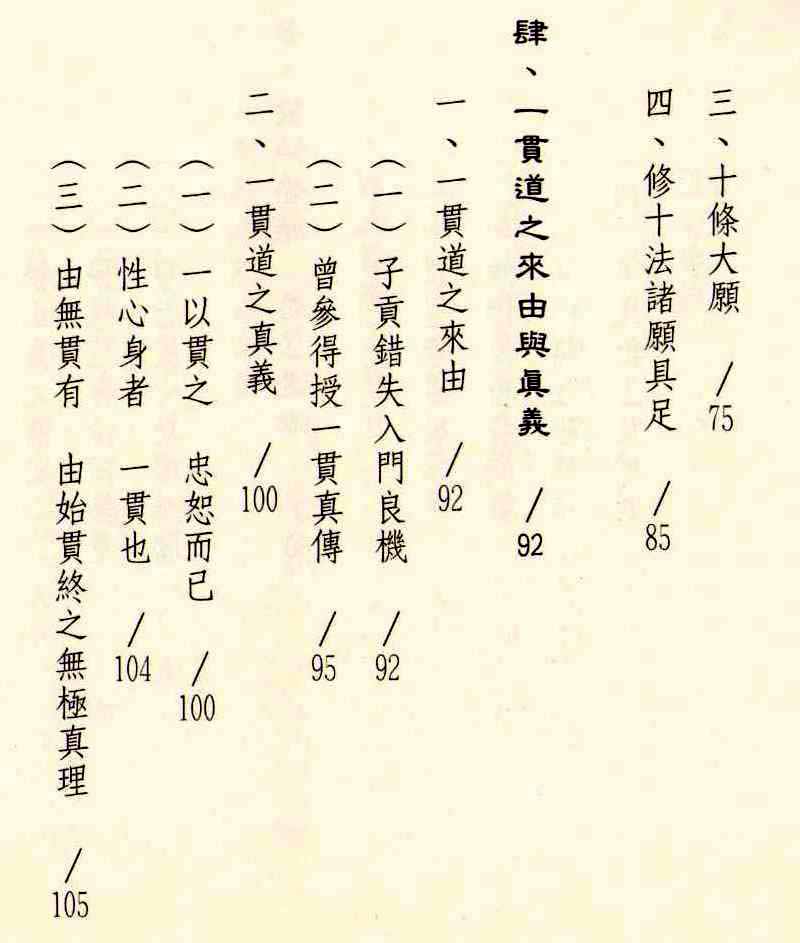 三、十條大願　/75
四、修十法諸願具足　/85
肆、一貫道之來由與眞義　/92
一、一貫道之來由　/92
（一）子貢錯失入門良機　/92
（二）曾參得授一貫真傳　/95
二、一貫道之真義　/100
（一）一以貫之　忠恕而已　/100
（二）性心身者　一貫也　/104
（三）由無貫有　由始貫終之無極真理　/105